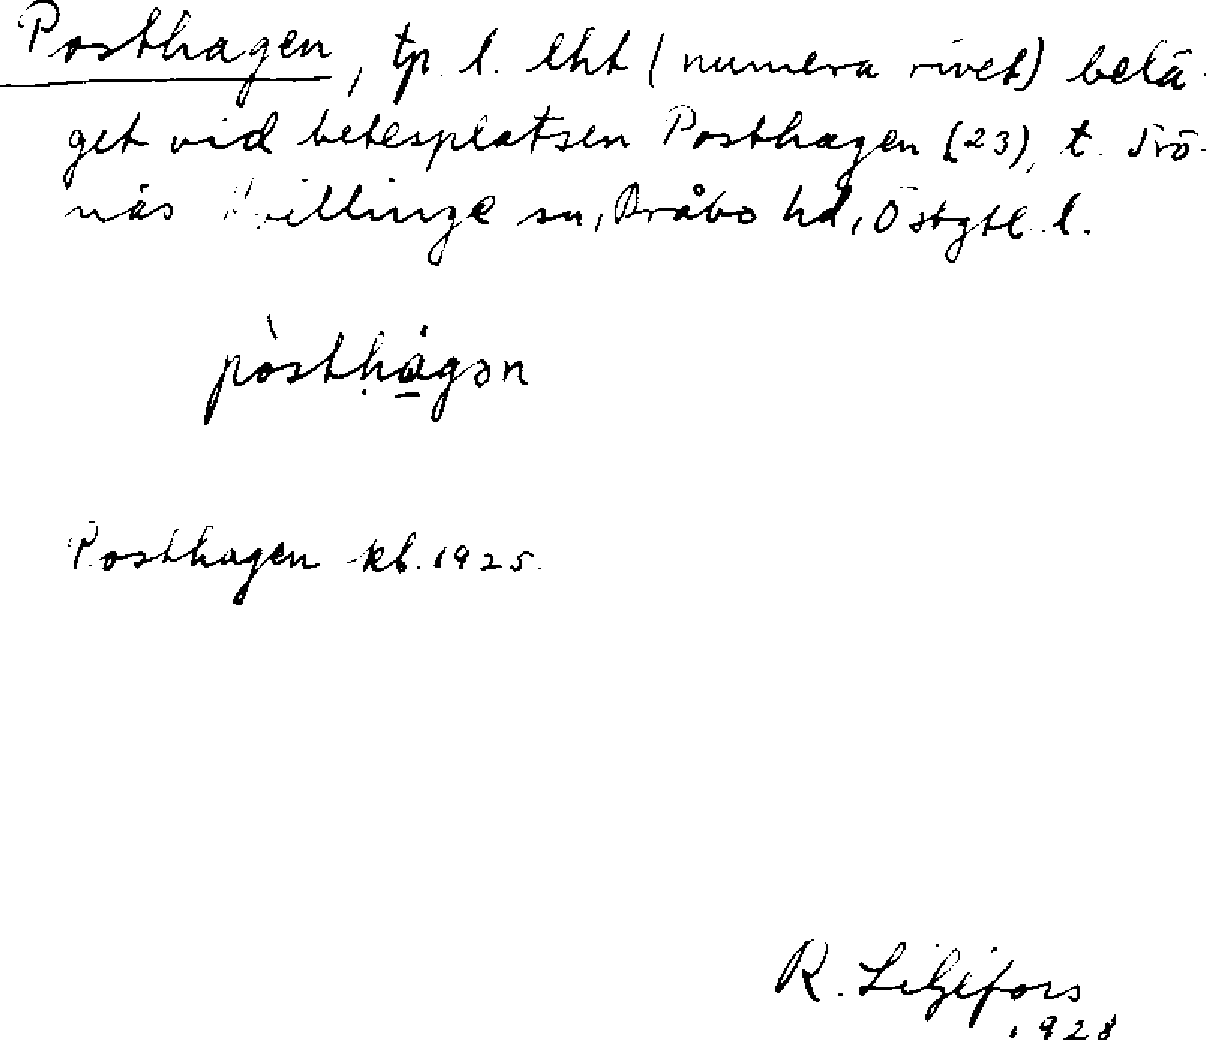 Posthagen, tp l. lht (numera rivet) belä-
get vid betesplatsen Posthagen (23), t. Frö-
näs Kvillinge sn, Bråbo hd, Östgtl. l.
pòsthágən
Posthagen kb. 1925.
R. Liljefors
1928